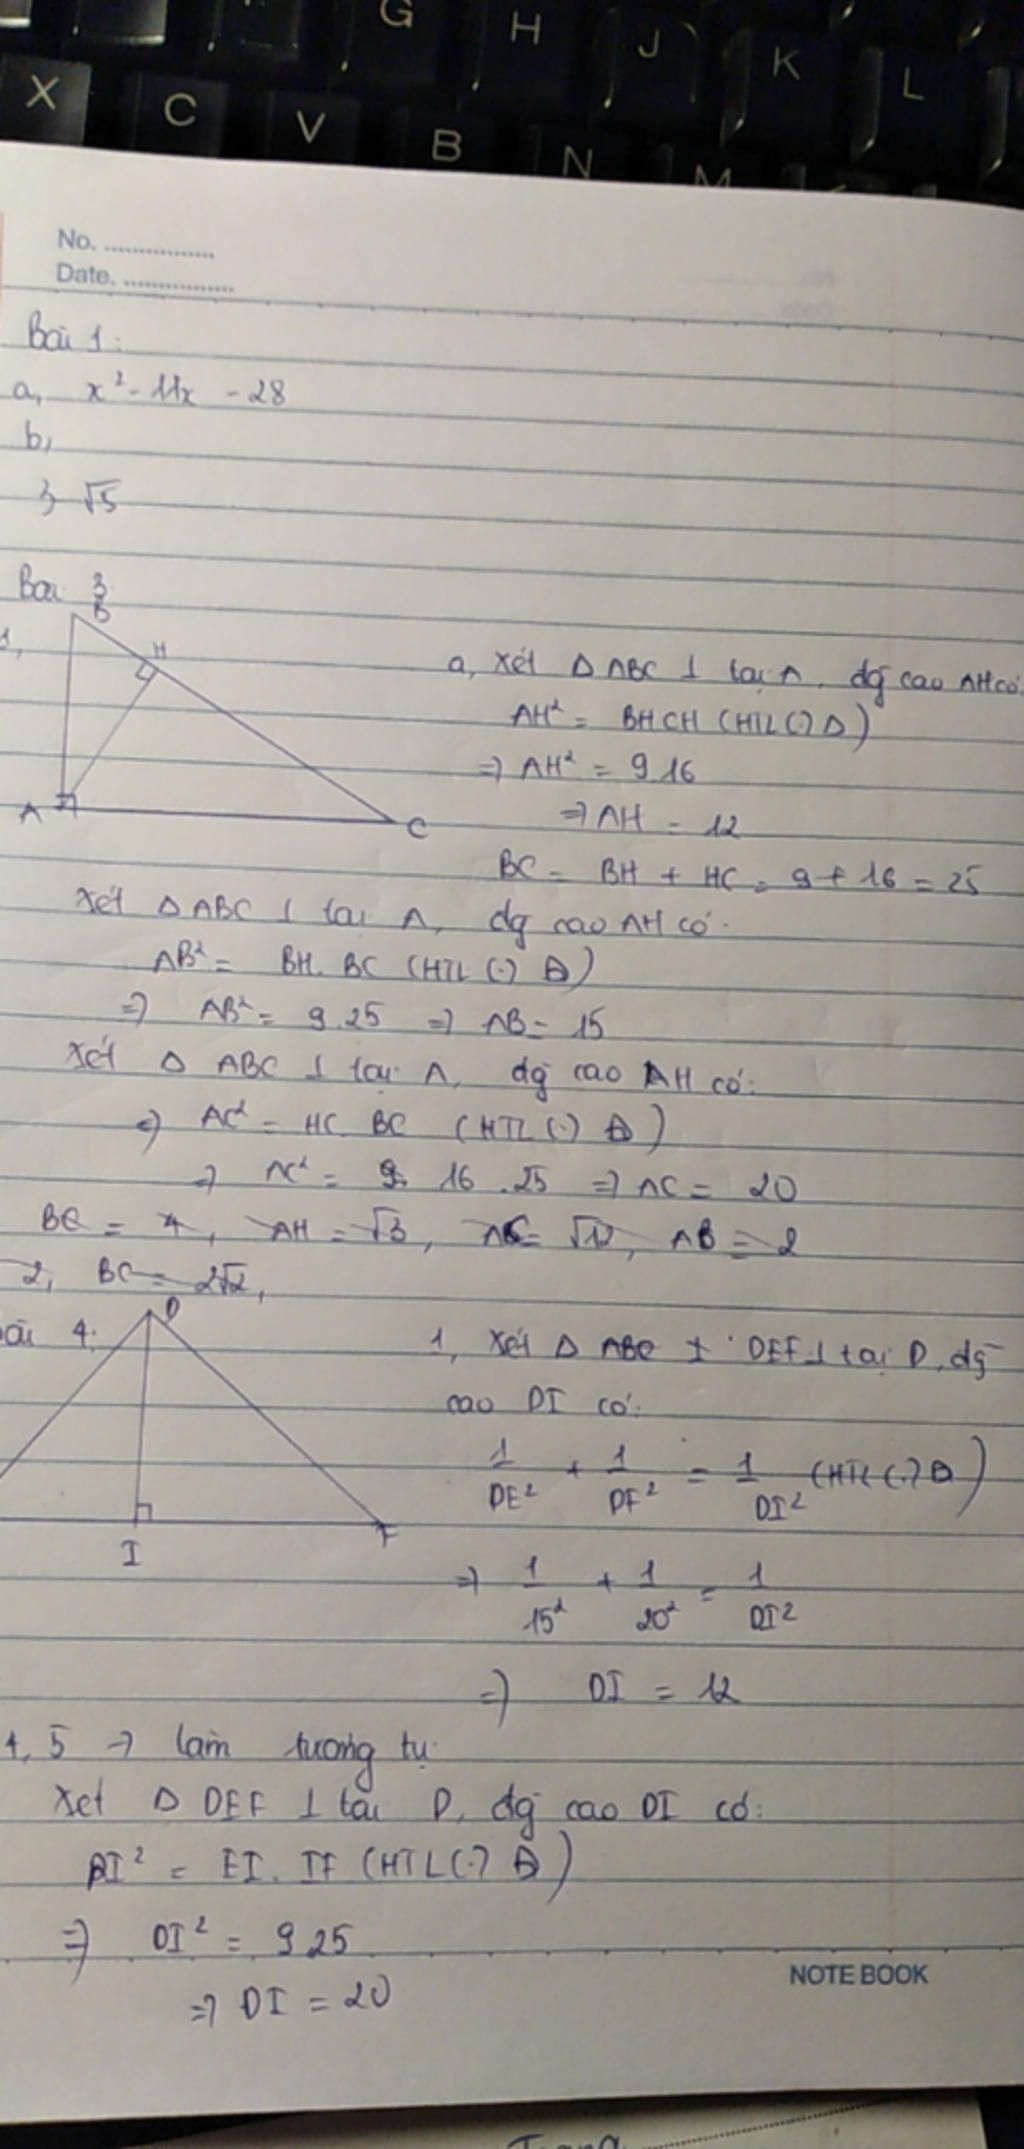 G H J K L
X C V B N M
No. ...............
Date. ...............
Bài 1:
a, x² - 11x - 28
b,
3 √5
Bài 3
1,
B
H
A
C
a, Xét Δ ABC ⊥ tại A, đg cao AH có:
AH² = BH.CH (HTL (.) Δ)
=> AH² = 9.16
=> AH = 12
BC = BH + HC = 9 + 16 = 25
Xét Δ ABC ⊥ tại A, đg cao AH có.
AB² = BH. BC (HTL (.) Δ)
=> AB² = 9.25 => AB = 15
Xét Δ ABC ⊥ tại A, đg cao AH có:
=> AC² = HC. BC (HTL (.) Δ)
=> AC² = 9. 16 .25 => AC = 20
BC = 4, AH = √3, AC = √12, AB = 2
2, BC = 2√2,
Bài 4:
D
I
F
1, Xét Δ ABC ⊥ DEF ⊥ tại D, đg
cao DI có:
1/DE² + 1/DF² = 1/DI² (HTL (.) Δ)
=> 1/15² + 1/20² = 1/DI²
=> DI = 12
4, 5 -> làm tương tự
Xét Δ DEF ⊥ tại D, đg cao DI có:
DI² = EI. IF (HTL (.) Δ)
=> DI² = 9.25
=> DI = 20
NOTE BOOK
Trang